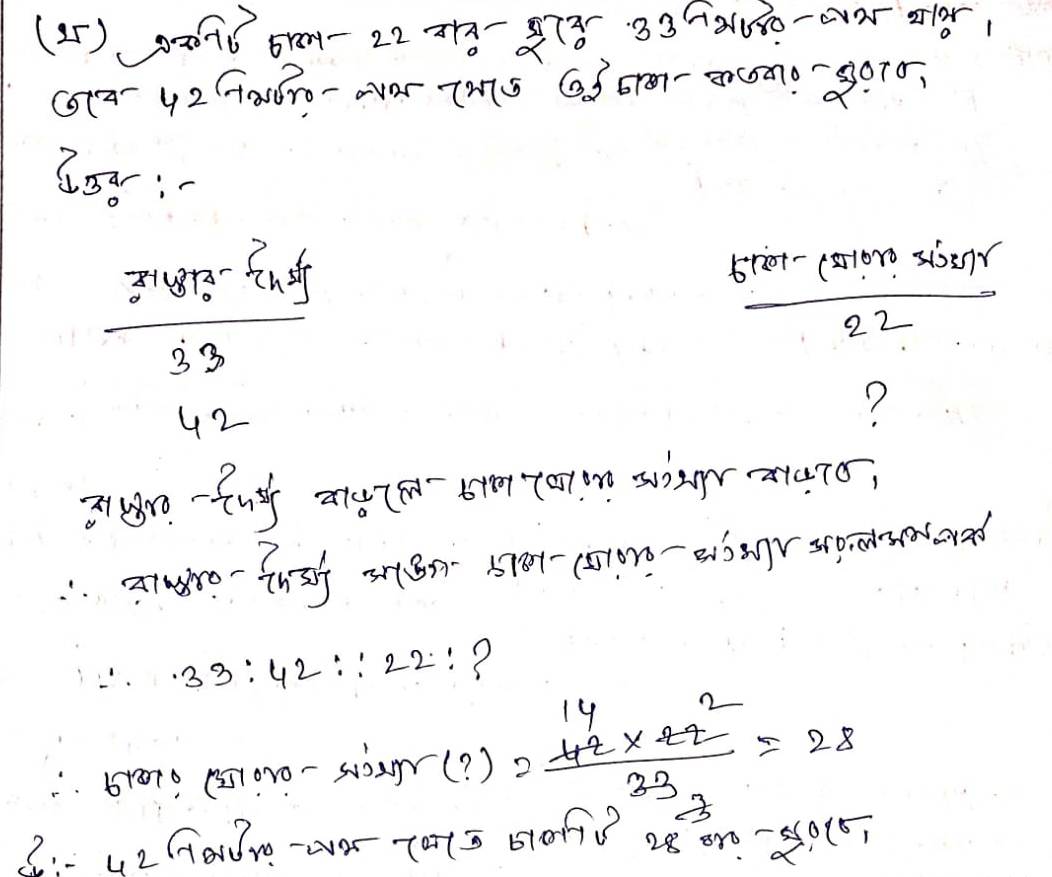 (থ) একটি চাকা 22 বার ঘুরে 33 মিটার পথ যায়।
তবে 42 মিটার পথ যেতে ঐ চাকা কতবার ঘুরবে,
উত্তর :-
রাস্তার দৈর্ঘ্য চাকা ঘোরার সংখ্যা
33 22
42 ?
রাস্তার দৈর্ঘ্য বাড়লে চাকা ঘোরার সংখ্যা বাড়বে,
∴ রাস্তার দৈর্ঘ্য সাথে চাকা ঘোরার সংখ্যা সরল সম্পর্ক
∴ 33 : 42 :: 22 : ?
14 2
∴ চাকার ঘোরার সংখ্যা (?) = 42 × 22 = 28
33
3
উ:- 42 মিটার পথ যেতে চাকাটি 28 বার ঘুরবে,